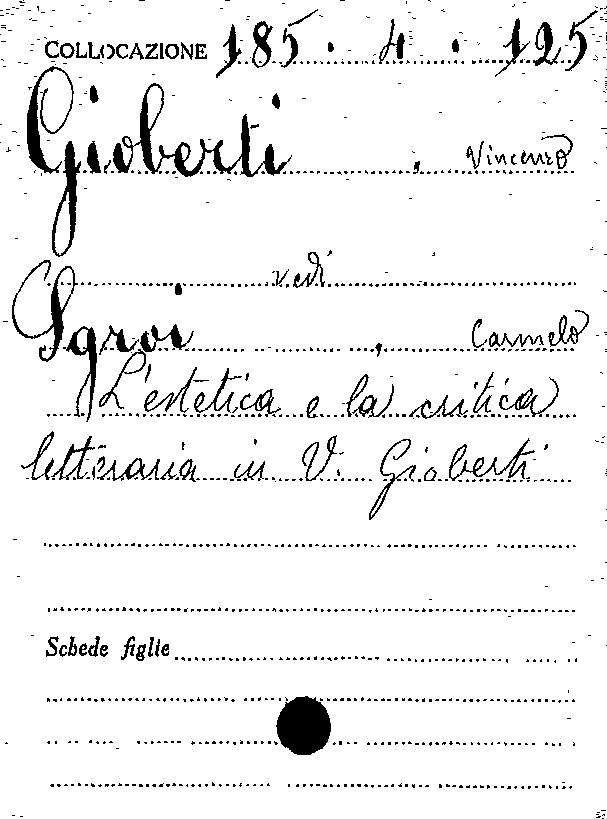 COLLOCAZIONE 185 . 4 . 125
Gioberti , Vincenzo
vedi
Sgroi , Carmelo
L'estetica e la critica
letteraria in V. Gioberti
Schede figlie